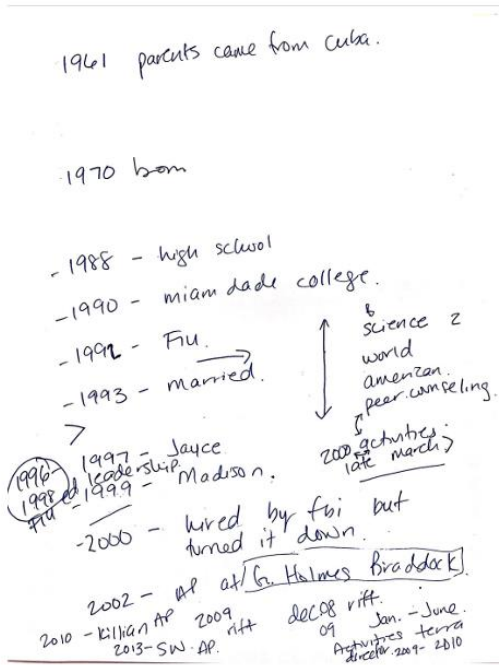 1961 parents came from Cuba.
1970 born
- 1988 - high school
- 1990 - miam dade college.
- 1992 - FIU.
- 1993 - married.
science 2
world
american.
peer counseling.
2000 activities.
(late march)
1997 - Jayce
1996-
1998
FIU ed leadership.
- 1999 - Madison.
- 2000 - hired by fbi but
turned it down.
2002 - AP at G. Holmes Braddock
2010 - Killian AP 2009 rift
dec 08 rift.
09 Jan. - June.
2013 - SW. AP.
Activities terra
director. 2009 - 2010